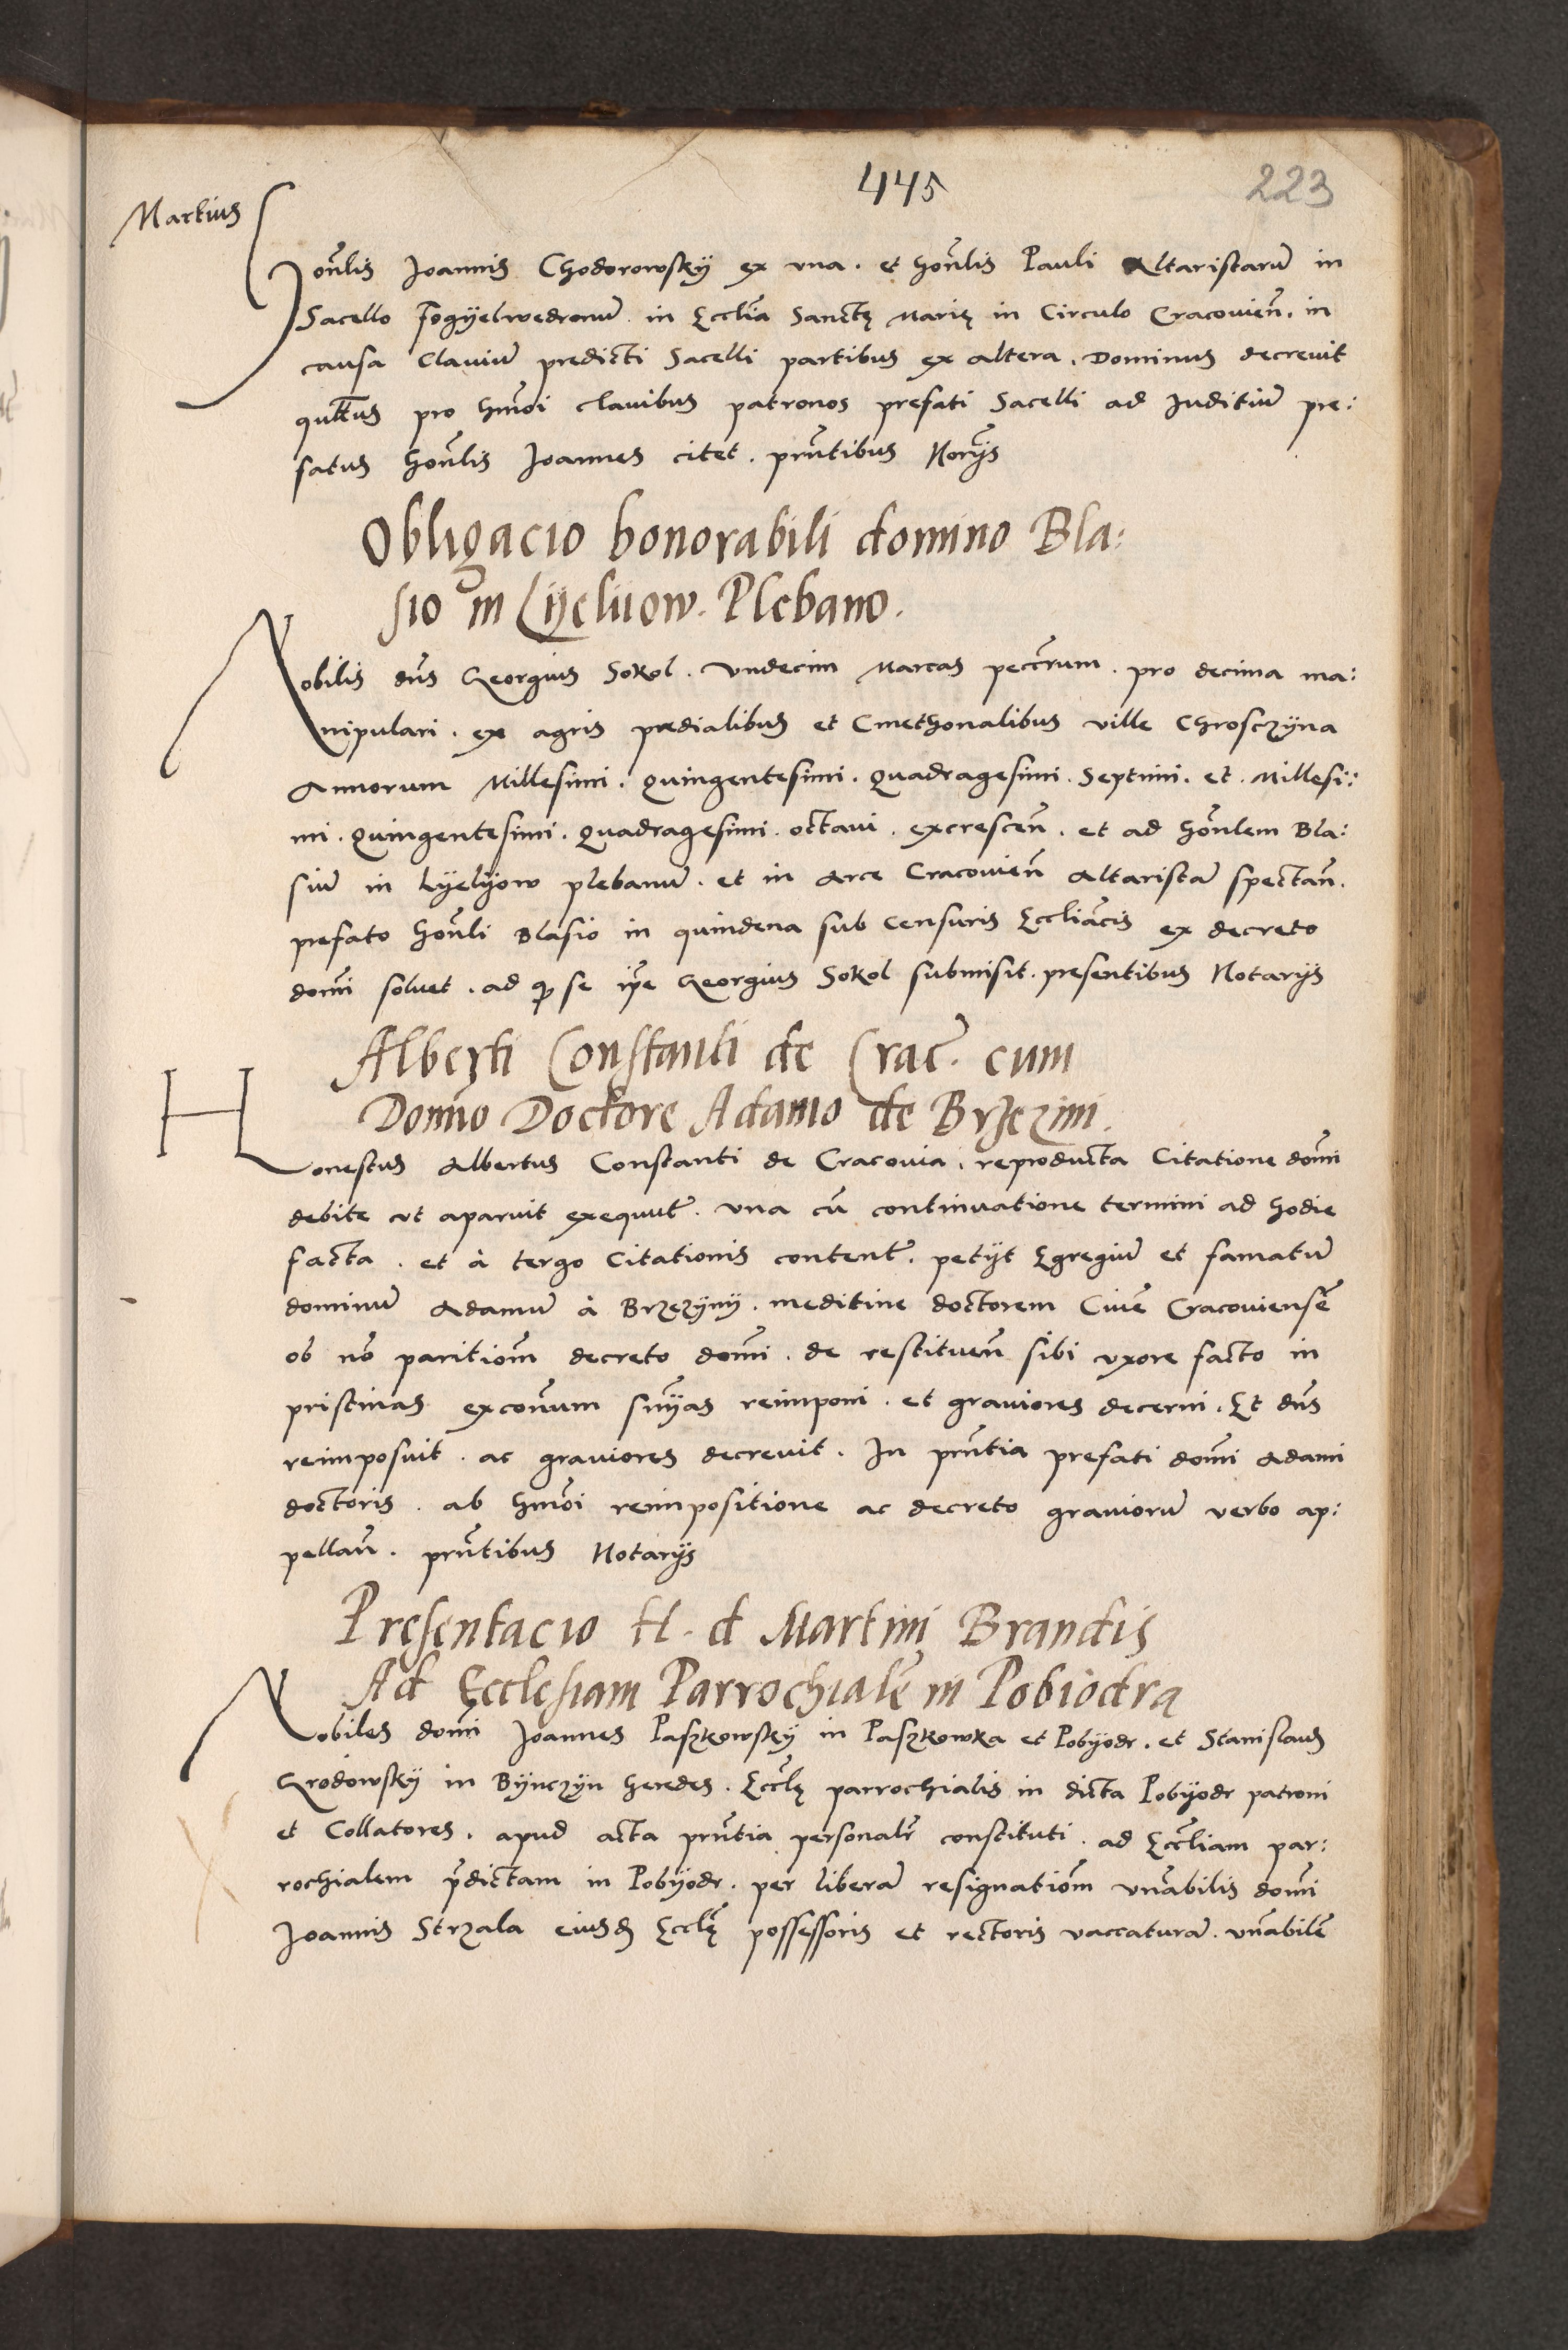 445
223
Martius
Honlis Joannis Chodorowsky ex vna. et honlis Pauli Altaristarum in
Sacello Fogyelwedronum in Ecclia Sanctę Marię in Circulo Cracovien. in
causa Clavium predicti Sacelli partibus ex altera. Dominus decrevit
quatenus pro hmoi clavibus patronos prefati Sacelli ad Juditium pre:
fatus honlis Joannes citet. prntibus Norijs
Obligacio honorabili domino Bla:
sio in Lyeliiow. Plebano.
Nobilis dns Georgius Sokol. Vndecim Marcas peccrum. pro decima ma:
nipulari. ex agris predialibus et Cmethonalibus ville Chrosczyna
Annorum Millesimi. Quingentesimi. Quadragesimi. Septimi. et. Millesi:
mi. Quingentesimi. Quadragesimi. octavi. excrescen. et ad honlem Bla:
sium in Lyelyow plebanum. et in Arce Cracovien Altaristam spectan.
prefato honli Blasio in quindena sub Censuris Eccliacis ex decreto
domi solvet. ad qd se ipe Georgius Sokol submisit. presentibus Notarijs
Alberti Constanti de Crac. cum
Domino Doctore Adamo de Brzezini.
Honestus Albertus Constanti de Cracovia. reproducta Citatione domi
debite vt aparuit exequut. vna cum continuatione termini ad hodie
facta. et à tergo Citationis content. petijt Egregium et famatum
dominum Adamum à Brzezyny. meditine doctorem Civem Cracoviensem
ob non paritiom decreto domi. de restituen sibi vxore facto in
pristinas exconum snias reimponi. et graviores decerni. Et dns
reimposuit. ac graviores decrevit. In prntia prefati domi Adami
doctoris. ab hmoi reimpositione ac decreto graviorum verbo ap:
pellan. prntibus Notarijs
Presentacio H. d Martini Brandis
Ad Ecclesiam Parrochialem in Pobiodrą
Nobiles domi Joannes Paszkowsky in Paszkowka et Pobyodr. et Stanislaus
Grodowsky in Bynczyn heredes. Ecclę parrochialis in dicta Pobyodr patroni
et Collatores. apud acta prntia personalr constituti. ad Eccliam par:
rochialem pdictam in Pobyodr. per liberam resignatiom vnabilis domi
Joannis Strzala eiusd Ecclę possessoris et rectoris vaccaturam. vnabilem